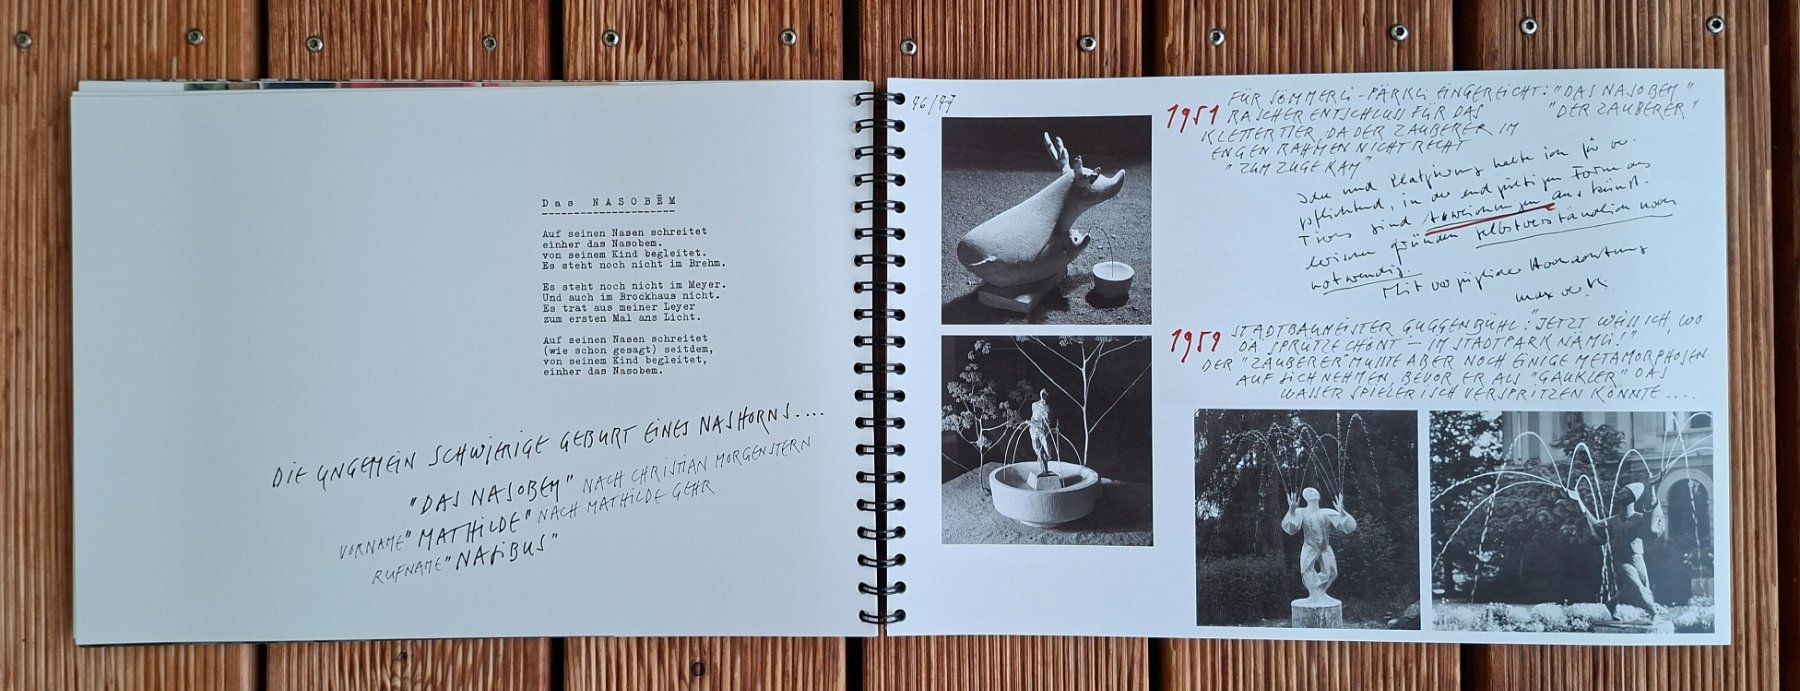 Das NASOBĒM
Auf seinen Nasen schreitet
einher das Nasobem.
von seinem Kind begleitet.
Es steht noch nicht im Brehm.
Es steht noch nicht im Meyer.
Und auch im Brockhaus nicht.
Es trat aus meiner Leyer
zum ersten Mal ans Licht.
Auf seinen Nasen schreitet
(wie schon gesagt) seitdem,
von seinem Kind begleitet,
einher das Nasobem.
DIE UNGEMEIN SCHWIERIGE GEBURT EINES NASHORNS....
"DAS NASOBEM" NACH CHRISTIAN MORGENSTERN
VORNAME "MATHILDE" NACH MATHILDE GEHR
RUFNAME "NASIBUS"
76/77
1951 FÜR SÖMMERLI-PÄRKLI EINGEREICHT: "DAS NASOBEM"
"DER ZAUBERER"
RASCHER ENTSCHLUSS FÜR DAS
KLETTERTIER, DA DER ZAUBERER IM
ENGEN RAHMEN NICHT RECHT
"ZUM ZUGE KAM"
Idee und Platzierung halte ich für ver-
pflichtend, in der endgültigen Form des
Tieres sind Abweichungen aus künst-
lerischen Gründen selbstverständlich noch
notwendig.
Mit vorzüglicher Hochachtung
1959 STADTBAUMEISTER GUGGENBÜHL: "JETZT WEISS ICH, WO
DA SPRÜTZE CHÖNT – IM STADTPARK NÄMLI!"
DER "ZAUBERER" MUSSTE ABER NOCH EINIGE METAMORPHOSEN
AUF SICH NEHMEN, BEVOR ER ALS "GAUKLER" DAS
WASSER SPIELERISCH VERSPRITZEN KONNTE....